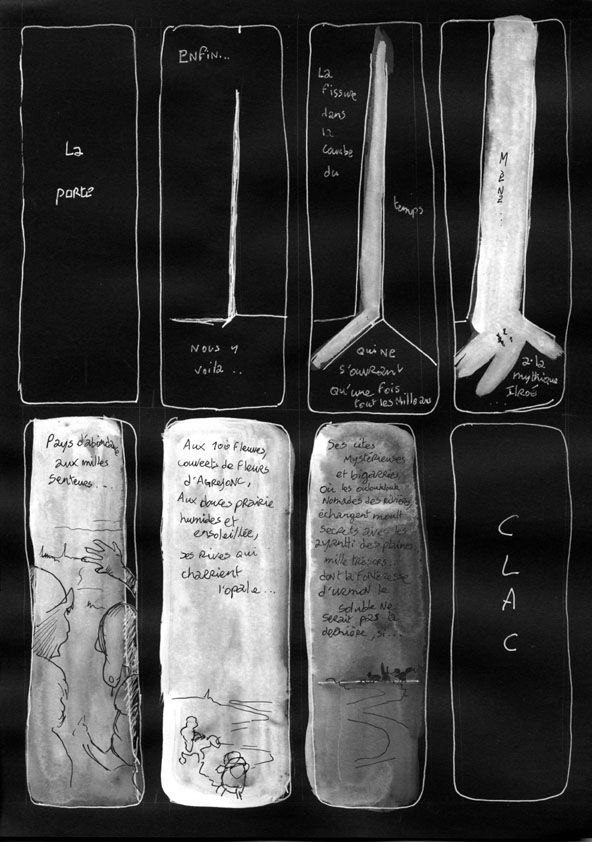 La
porte
Enfin...
Nous y
voilà..
La
fissure
dans
la
courbe
du
temps
qui ne
s'ouvrant
qu'une fois
tout les Mille ans
Mène..
à la
mythique
Pays d'abondance
aux milles
senteurs...
Aux 100 fleuves,
couverts de fleurs
d'Agrejonc,
Aux douces prairie
humides et
ensoleillée,
ses Rives qui
charrient
l'opale...
Ses cités
Mystérieuses
et bigarrées
Où les
Nomades des Rivières
échangent moult
secrets avec les
des plaines
mille trésors.
dont la forteresse
d'urmon le
soluble Ne
serait pas la
dernière, si...
CLAC